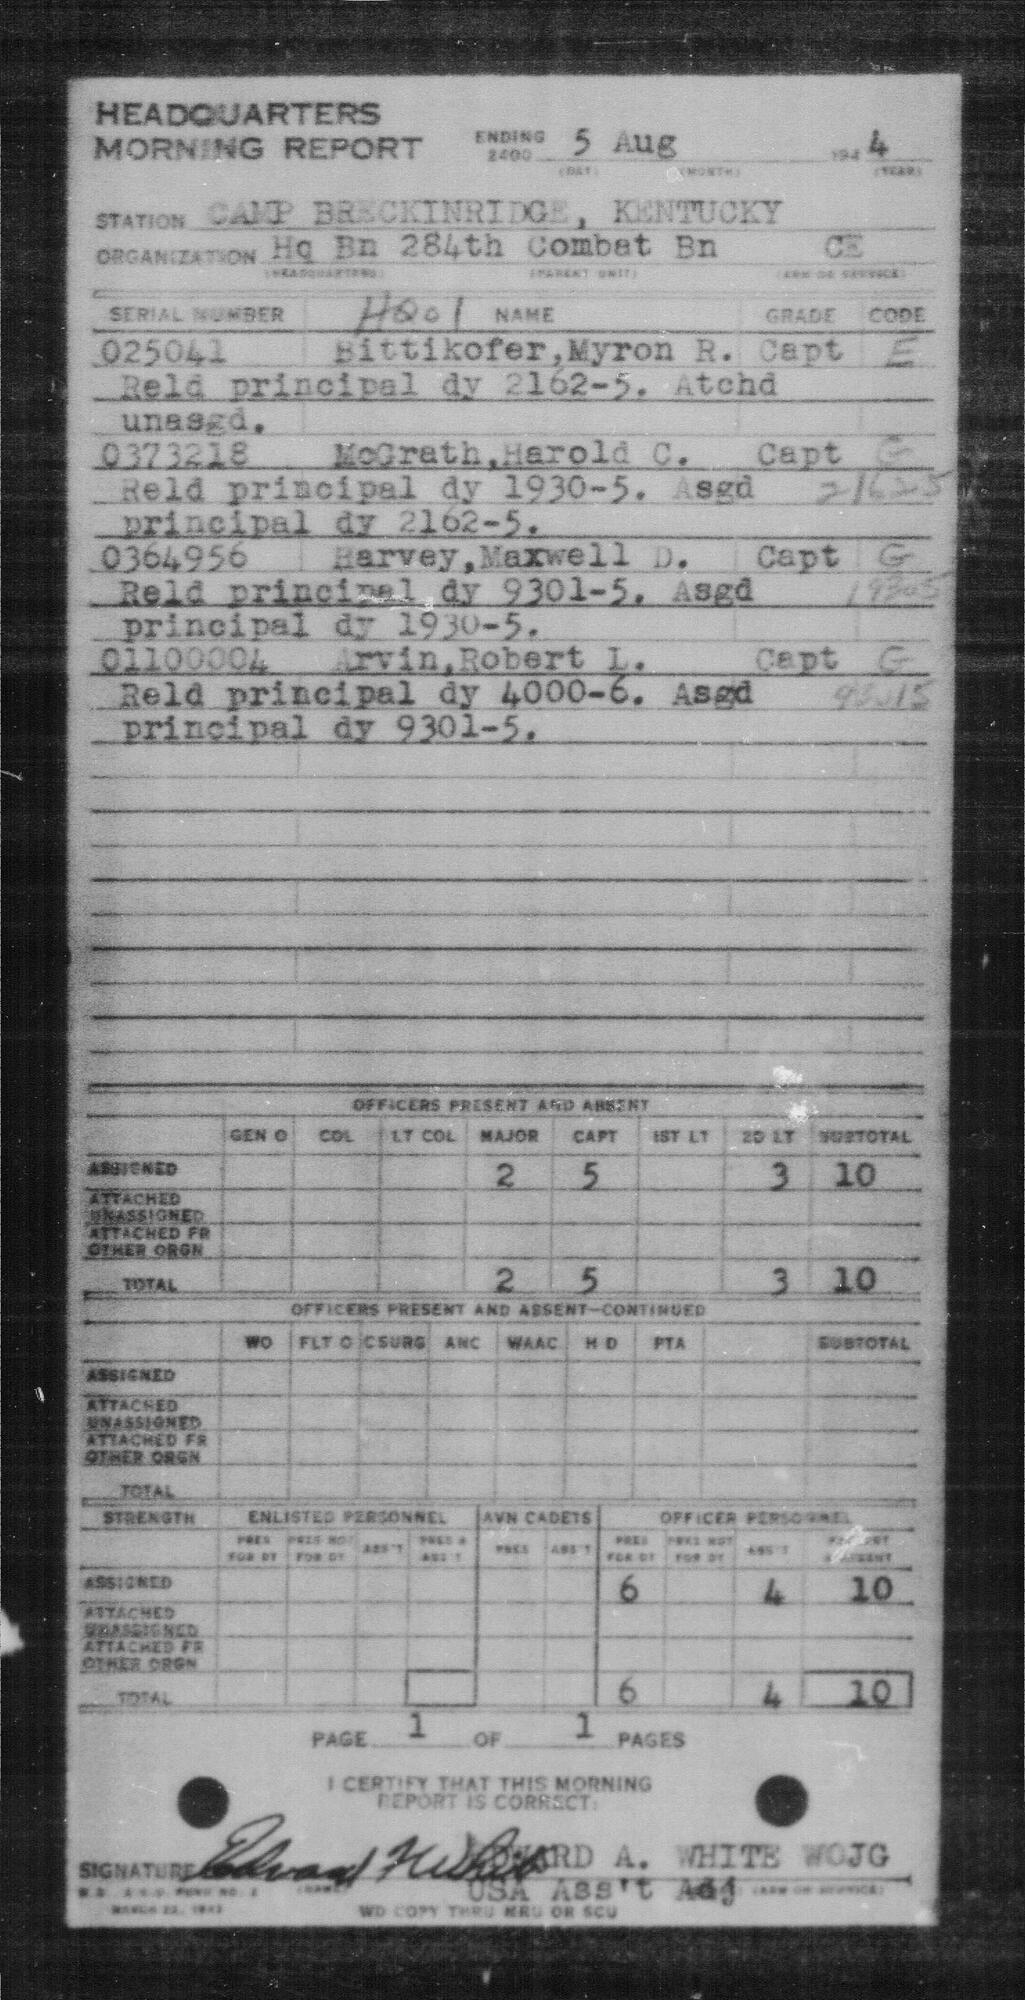 HEADQUARTERS
MORNING REPORT ENDING 2400 5 Aug 194 4
(DAY) (MONTH) (YEAR)
STATION CAMP BRECKINRIDGE, KENTUCKY
ORGANIZATION Hq Bn 284th Combat Bn CE
(HEADQUARTERS) (PARENT UNIT) (ARM OR SERVICE)
SERIAL NUMBER HQ01 NAME GRADE CODE
025041 Bittikofer,Myron R. Capt E
Reld principal dy 2162-5. Atchd
unasgd.
0373218 McGrath,Harold C. Capt G
Reld principal dy 1930-5. Asgd 21625
principal dy 2162-5.
0364956 Harvey,Maxwell D. Capt G
Reld principal dy 9301-5. Asgd 19305
principal dy 1930-5.
01100004 Arvin,Robert L. Capt G
Reld principal dy 4000-6. Asgd 93015
principal dy 9301-5.
OFFICERS PRESENT AND ABSENT
GEN O COL LT COL MAJOR CAPT 1ST LT 2D LT SUBTOTAL
ASSIGNED 2 5 3 10
ATTACHED
UNASSIGNED
ATTACHED FR
OTHER ORGN
TOTAL 2 5 3 10
OFFICERS PRESENT AND ABSENT—CONTINUED
WO FLT O CSURG ANC WAAC H D PTA SUBTOTAL
ASSIGNED
ATTACHED
UNASSIGNED
ATTACHED FR
OTHER ORGN
TOTAL
STRENGTH ENLISTED PERSONNEL AVN CADETS OFFICER PERSONNEL
PRES PRES NOT ABS'T PRES & PRES ABS'T PRES PRES NOT ABS'T
FOR DY FOR DY ABS'T FOR DY FOR DY
ASSIGNED 6 4 10
ATTACHED
UNASSIGNED
ATTACHED FR
OTHER ORGN
TOTAL 6 4 10
PAGE 1 OF 1 PAGES
I CERTIFY THAT THIS MORNING
REPORT IS CORRECT:
SIGNATURE WARD A. WHITE WOJG
(NAME) USA Ass't Adj (ARM OR SERVICE)
MARCH 22, 1943
WD COPY THRU MRU OR SCU